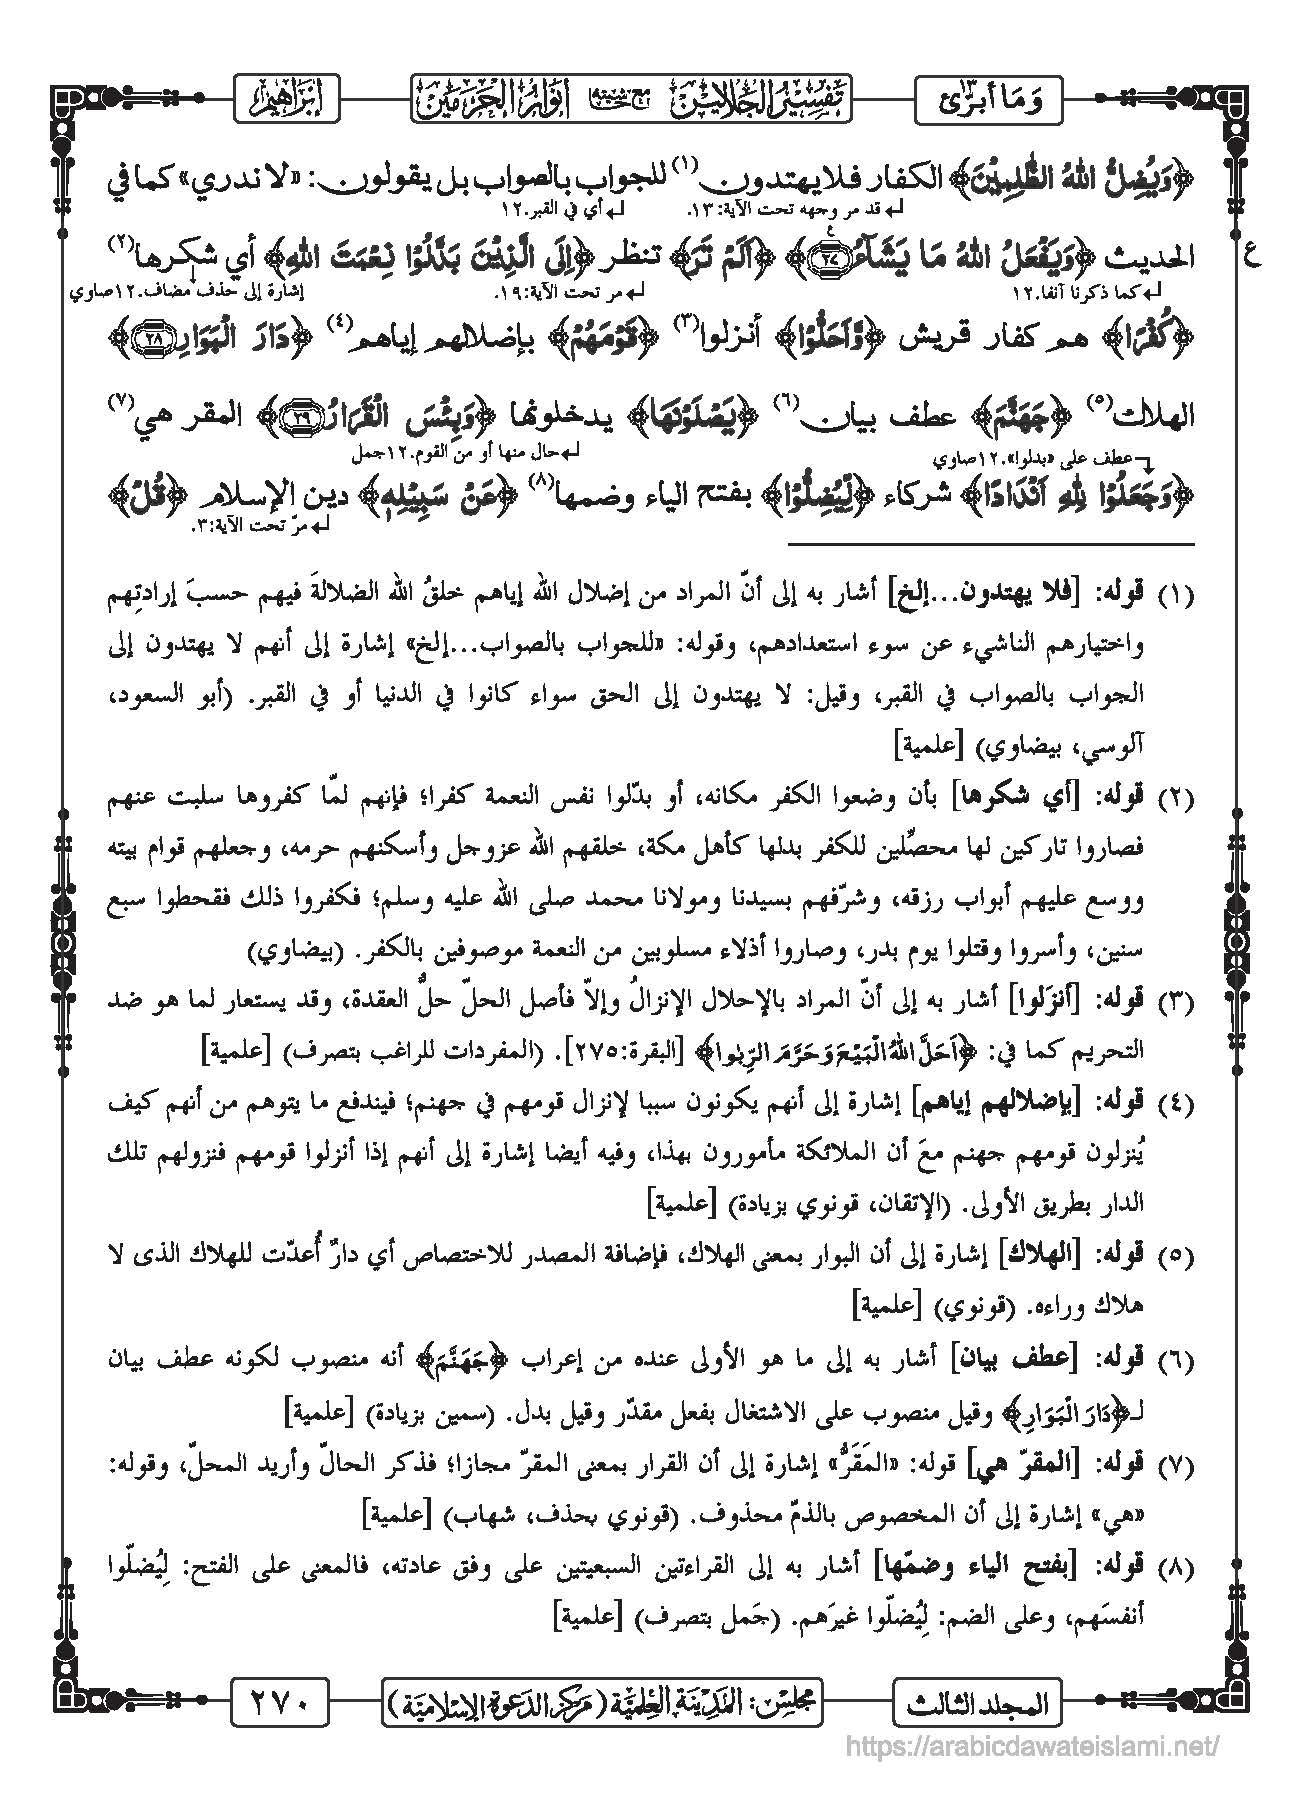 وَمَا أبرّئ ١٣
تفسير الجلالين مع حاشيته أنوار الحرمين
إبراهيم
﴿وَيُضِلُّ اللهُ الظّٰلِمِيْنَ﴾ الكفار فلا يهتدون(١) للجواب بالصواب بل يقولون: «لا ندري» كما في
↲ قد مر وجهه تحت الآية:١٣. ↲ أي في القبر.١٢
الحديث ﴿وَيَفْعَلُ اللهُ مَا يَشَآءُ ﴿٢٧﴾﴾ ﴿اَلَمْ تَرَ﴾ تنظر ﴿اِلَى الَّذِيْنَ بَدَّلُوْا نِعْمَتَ اللهِ﴾ أي شكرها(٢)
ع
٤
↲ كما ذكرنا آنفا.١٢ ↲ مر تحت الآية:١٩. إشارة إلى حذف مضاف.١٢صاوي
﴿كُفْرًا﴾ هم كفار قريش ﴿وَّاَحَلُّوْا﴾ أنزلوا(٣) ﴿قَوْمَهُمْ﴾ بإضلالهم إياهم(٤) ﴿دَارَ الْبَوَارِ ﴿٢٨﴾﴾
الهلاك(٥) ﴿جَهَنَّمَ﴾ عطف بيان(٦) ﴿يَصْلَوْنَهَا﴾ يدخلونها ﴿وَبِئْسَ الْقَرَارُ ﴿٢٩﴾﴾ المقر هي(٧)
عطف على «بدلوا».١٢صاوي ↲ حال منها أو من القوم.١٢جمل
﴿وَجَعَلُوْا لِلّٰهِ اَنْدَادًا﴾ شركاء ﴿لِّيُضِلُّوْا﴾ بفتح الياء وضمها(٨) ﴿عَنْ سَبِيْلِهٖ﴾ دين الإسلام ﴿قُلْ﴾
↲ مرّ تحت الآية:٣.
(١) قوله: [فلا يهتدون...إلخ] أشار به إلى أنّ المراد من إضلال الله إياهم خلقُ الله الضلالةَ فيهم حسبَ إرادتِهم
واختيارهم الناشيء عن سوء استعدادهم، وقوله: «للجواب بالصواب...إلخ» إشارة إلى أنهم لا يهتدون إلى
الجواب بالصواب في القبر، وقيل: لا يهتدون إلى الحق سواء كانوا في الدنيا أو في القبر. (أبو السعود،
آلوسي، بيضاوي) [علمية]
(٢) قوله: [أي شكرها] بأن وضعوا الكفر مكانه، أو بدّلوا نفس النعمة كفرا؛ فإنهم لمّا كفروها سلبت عنهم
فصاروا تاركين لها محصِّلين للكفر بدلها كأهل مكة، خلقهم الله عزوجل وأسكنهم حرمه، وجعلهم قوام بيته
ووسع عليهم أبواب رزقه، وشرّفهم بسيدنا ومولانا محمد صلى الله عليه وسلم؛ فكفروا ذلك فقحطوا سبع
سنين، وأسروا وقتلوا يوم بدر، وصاروا أذلاء مسلوبين من النعمة موصوفين بالكفر. (بيضاوي)
(٣) قوله: [أنزَلوا] أشار به إلى أنّ المراد بالإحلال الإنزالُ وإلاّ فأصل الحلّ حلُّ العقدة، وقد يستعار لما هو ضد
التحريم كما في: ﴿اَحَلَّ اللهُ الْبَيْعَ وَحَرَّمَ الرِّبٰوا﴾ [البقرة:٢٧٥]. (المفردات للراغب بتصرف) [علمية]
(٤) قوله: [بإضلالهم إياهم] إشارة إلى أنهم يكونون سببا لإنزال قومهم في جهنم؛ فيندفع ما يتوهم من أنهم كيف
يُنزلون قومهم جهنم معَ أن الملائكة مأمورون بهذا، وفيه أيضا إشارة إلى أنهم إذا أنزلوا قومهم فنزولهم تلك
الدار بطريق الأولى. (الإتقان، قونوي بزيادة) [علمية]
(٥) قوله: [الهلاك] إشارة إلى أن البوار بمعنى الهلاك، فإضافة المصدر للاختصاص أي دارٌ أُعدّت للهلاك الذى لا
هلاك وراءه. (قونوي) [علمية]
(٦) قوله: [عطف بيان] أشار به إلى ما هو الأولى عنده من إعراب ﴿جَهَنَّمَ﴾ أنه منصوب لكونه عطف بيان
لـ﴿دَارَ الْبَوَارِ﴾ وقيل منصوب على الاشتغال بفعل مقدّر وقيل بدل. (سمين بزيادة) [علمية]
(٧) قوله: [المقرّ هي] قوله: «المَقَرُّ» إشارة إلى أن القرار بمعنى المقرّ مجازا؛ فذكر الحالّ وأريد المحلّ، وقوله:
«هي» إشارة إلى أن المخصوص بالذمّ محذوف. (قونوي بحذف، شهاب) [علمية]
(٨) قوله: [بفتح الياء وضمّها] أشار به إلى القراءتين السبعيتين على وفق عادته، فالمعنى على الفتح: لِيُضلّوا
أنفسَهم، وعلى الضم: لِيُضلّوا غيرَهم. (جَمل بتصرف) [علمية]
المجلد الثالث
مجلس: المدينة العلمية (مركز الدعوة الإسلامية)
٢٧٠
https://arabicdawateislami.net/